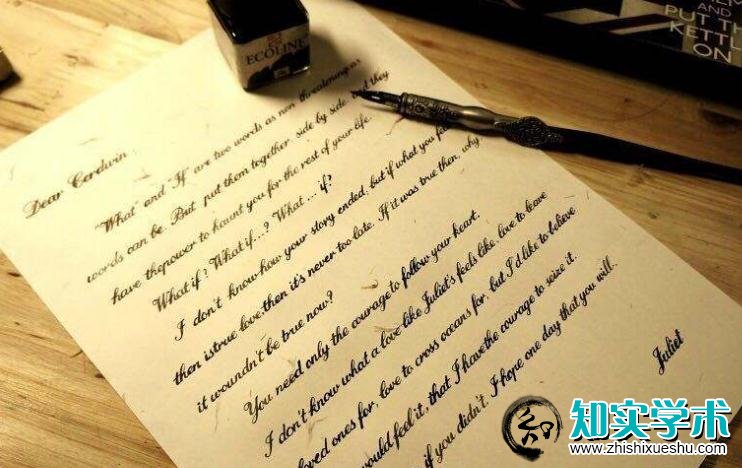 ECOLINE
AND
PUT TH
KETTL
ON
Dear Cerdwin
"What" and "If" are two words as non threatening as
words can be. But put them together side by side and they
have thepower to haunt you for the rest of your life.
What if? What if...? What ... if?
I don't know how your story ended, but if what you
then istrue love,then it's never too late. If it was true then, why
it woundn't be true now?
You need only the courage to follow your heart.
I don't know what a love like Juliet's feels like, love to leave
loved ones for, love to cross oceans for, but I'd like to believe
would feel it, that I havethe courage to seize it.
if you didn't, I hope one day that you will.
Juliet
知实学术
www.zhishixueshu.com